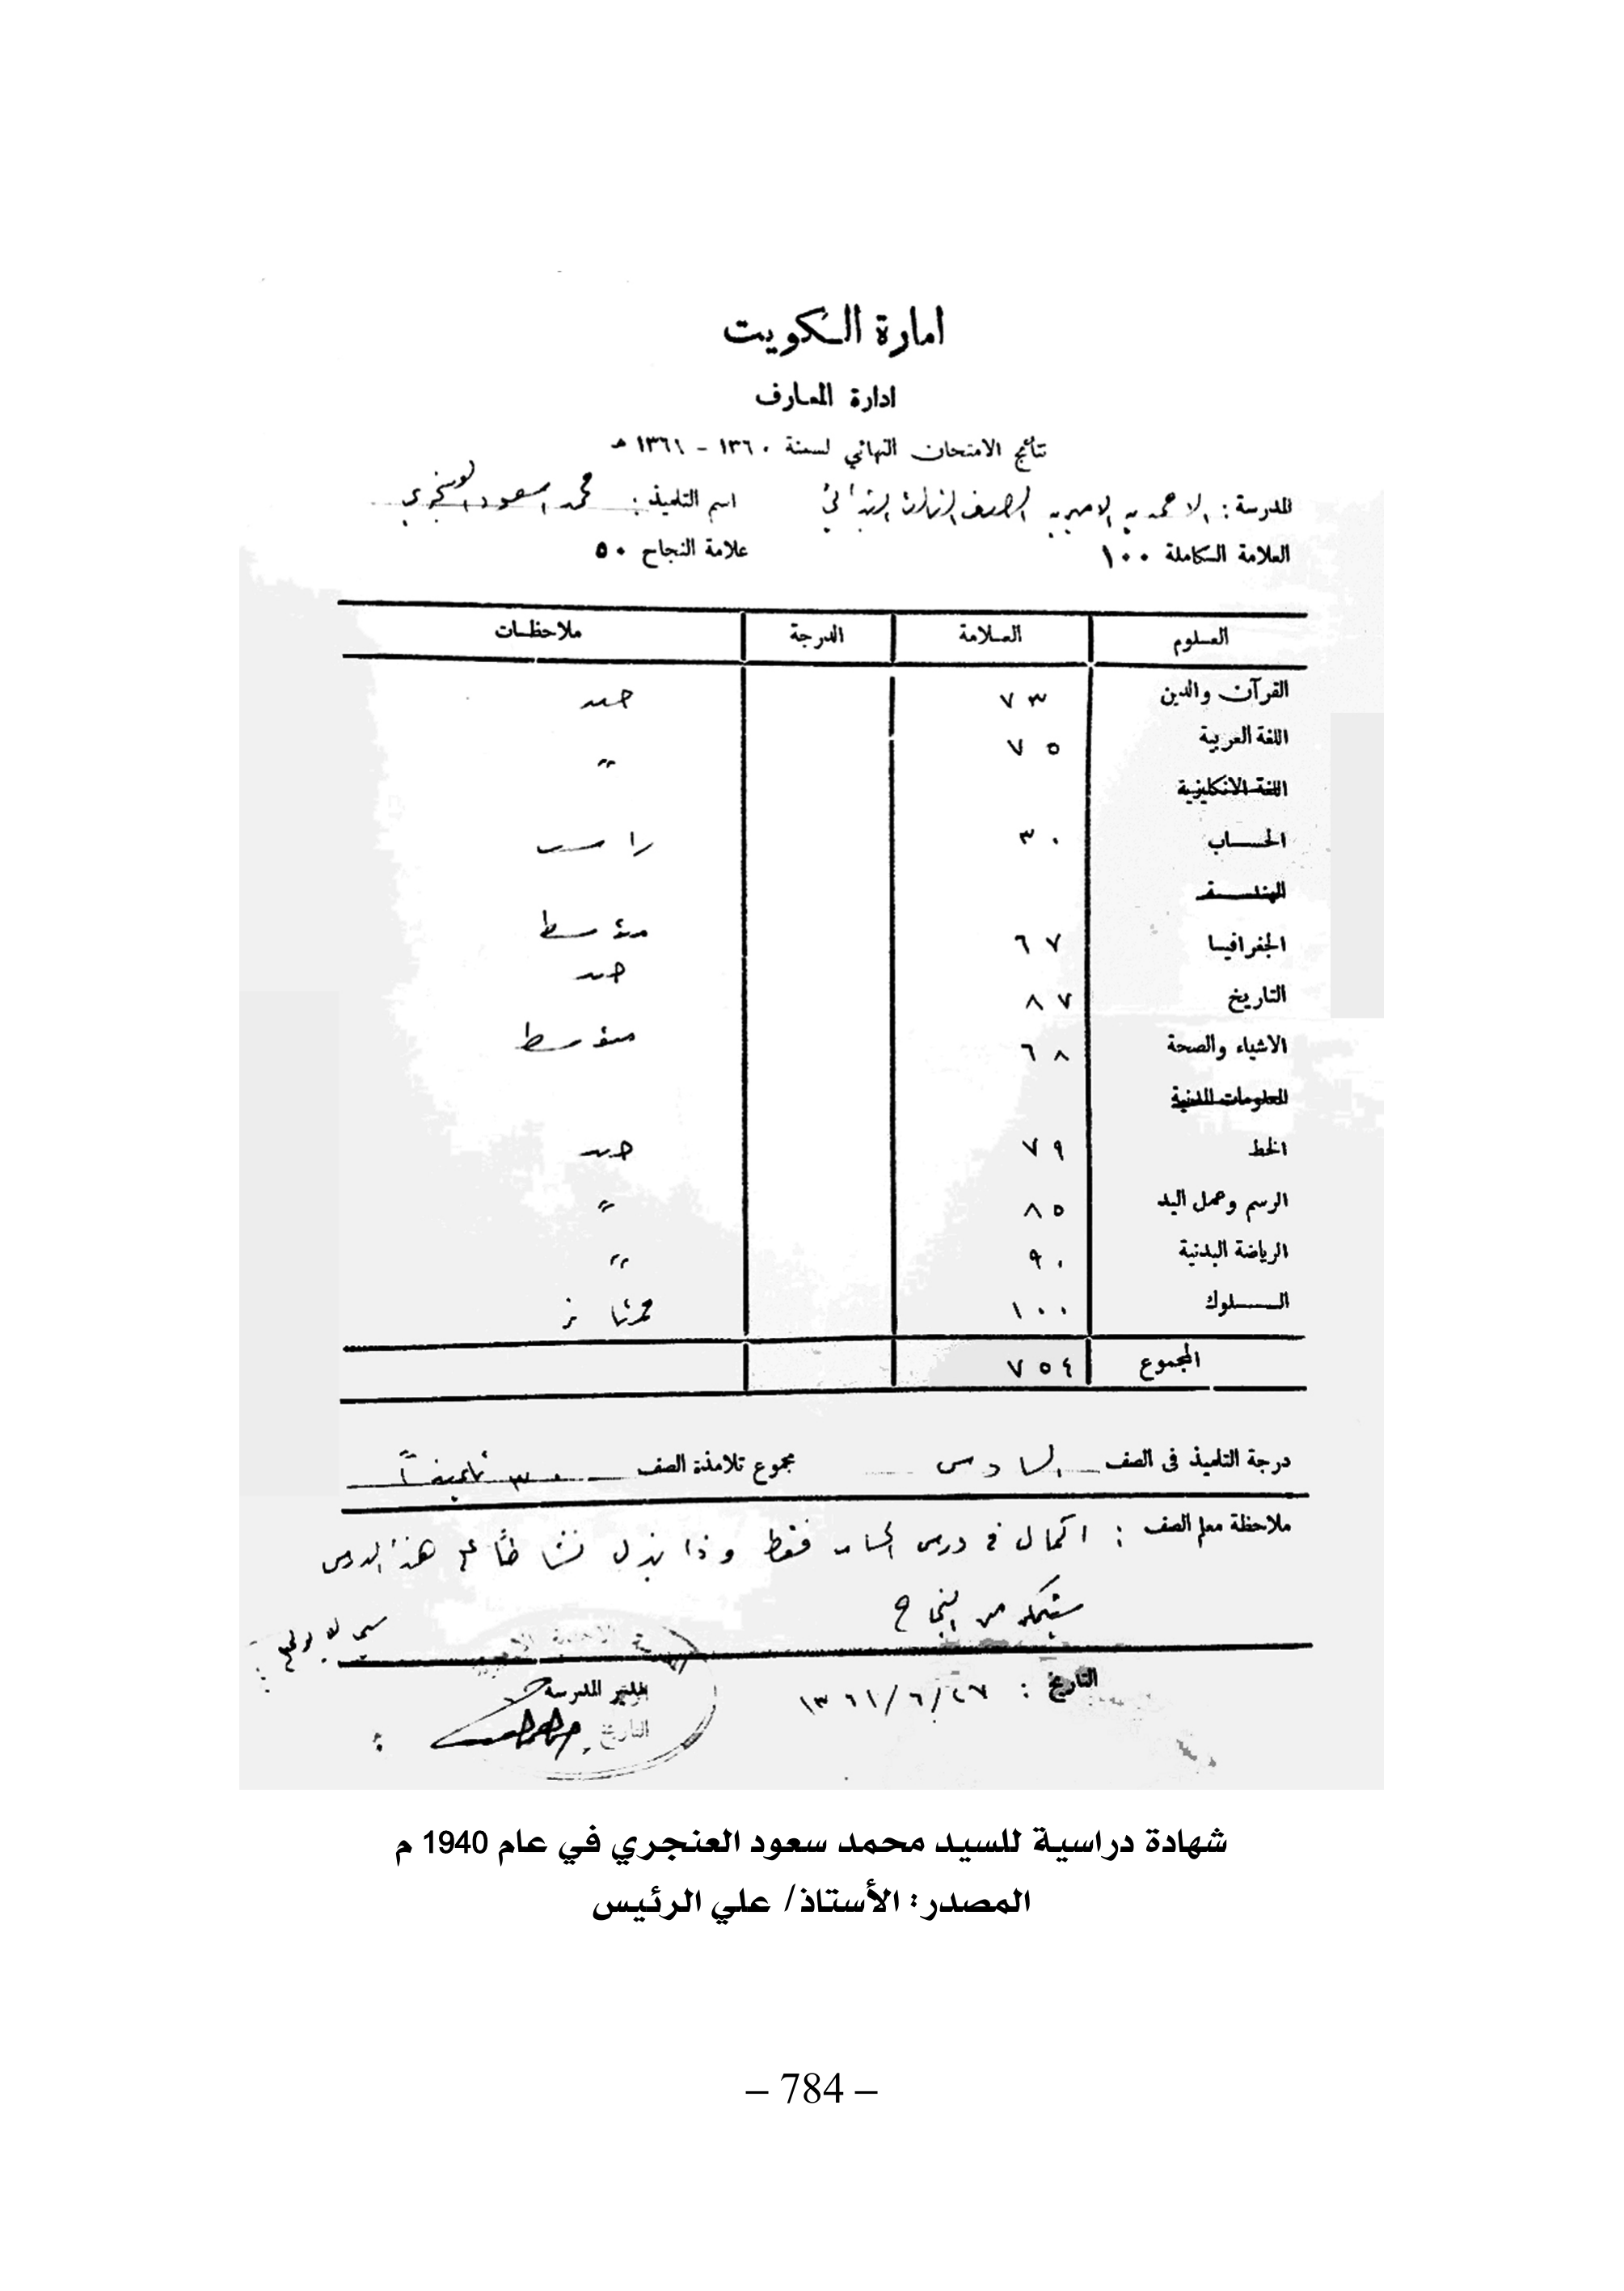 امارة الكويت
ادارة المعارف
نتائج الامتحان النهائي لسنة ١٣٦٠ - ١٣٦١ هـ
المدرسة : الاحمديه الاميريه الصف الابتدائي اسم التلميذ : محمد السعود العنجري
العلامة الكاملة ١٠٠ علامة النجاح ٥٠
العلوم العلامة الدرجة ملاحظات
القرآن والدين ٧٣ جيد
اللغة العربية ٧٥ "
اللغة الانكليزية
الحساب ٣٠ راسب
الهندسة
الجغرافيا ٦٧ متوسط
التاريخ ٨٧ جيد
الاشياء والصحة ٦٨ متوسط
المعلومات المدنية
الخط ٧٩ جيد
الرسم وعمل اليد ٨٥ "
الرياضة البدنية ٩٠ "
السلوك ١٠٠ ممتاز
المجموع ٧٥٤
درجة التلميذ في الصف السادس مجموع تلامذة الصف ٣٠ تلميذاً
ملاحظة معلم الصف : اكمال في درس الحساب فقط وإذا بذل نشاطاً في هذا الدرس
سيتمكن من النجاح
التاريخ : ٢٧/٦/١٣٦١ مدير المدرسة
التاريخ :
شهادة دراسية للسيد محمد سعود العنجري في عام 1940 م
المصدر: الأستاذ/ علي الرئيس
– 784 –